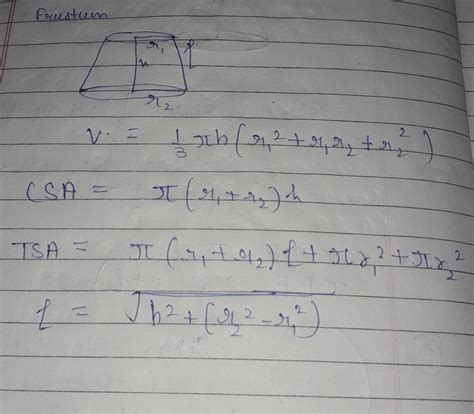 Frustum
r₁
h
l
r₂
V. = 1/3 πh (r₁² + r₁r₂ + r₂²)
CSA = π(r₁ + r₂)h
TSA = π(r₁ + r₂)l + πr₁² + πr₂²
l = √h² + (r₂² - r₁²)